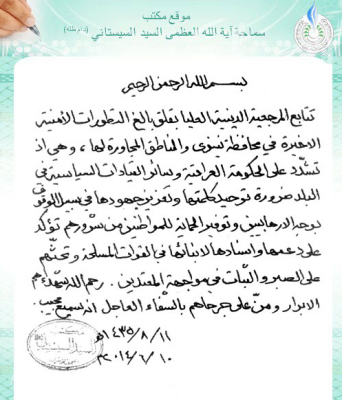 موقع مكتب
سماحة آية الله العظمى السيد السيستاني (دام ظله)
بسم الله الرحمن الرحيم
تتابع المرجعية الدينية العليا بقلق بالغ التطورات الأمنية
الاخيرة في محافظة نينوى والمناطق المجاورة لها، وهي اذ
تشدّد على الحكومة العراقية وسائر القيادات السياسية في
البلد ضرورة توحيد كلمتها وتعزيز جهودها في سبيل الوقوف
بوجه الارهابيين وتوفير الحماية للمواطنين من شرورهم تؤكد
على دعمها واسنادها لابنائها في القوات المسلحة وتحثّهم
على الصبر والثبات في مواجهة المعتدين. رحم الله شهداءهم
الابرار ومنّ على جرحاهم بالشفاء العاجل انه سميع مجيب.
١١/٨/١٤٣٥هـ
١٠/٦/٢٠١٤م